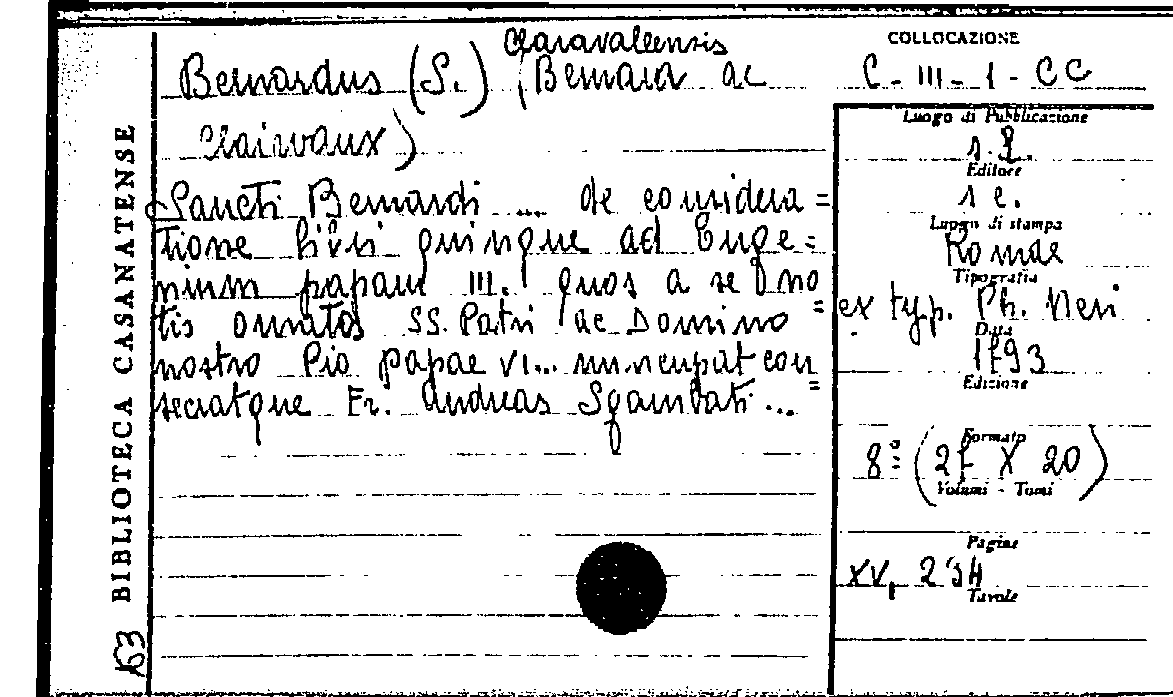 Claravallensis
Bernardus (S.) (Bernard de
Clairvaux)
Sancti Bernardi ... de considera=
tione libri quinque ad Euge=
nium papam III. quos a se no=
tis ornatos SS. Patri ac Domino
nostro Pio papae VI... nuncupat con=
secratque Fr. Andreas Sgambati ...
COLLOCAZIONE
C - III - 1 - CC
Luogo di Pubblicazione
s. l.
Editore
s e.
Luogo di stampa
Romae
Tipografia
ex typ. Ph. Neri
Data
1793
Edizione
Formato
8º (27 X 20)
Volumi - Tomi
Pagine
XV, 234
Tavole
BIBLIOTECA CASANATENSE
163